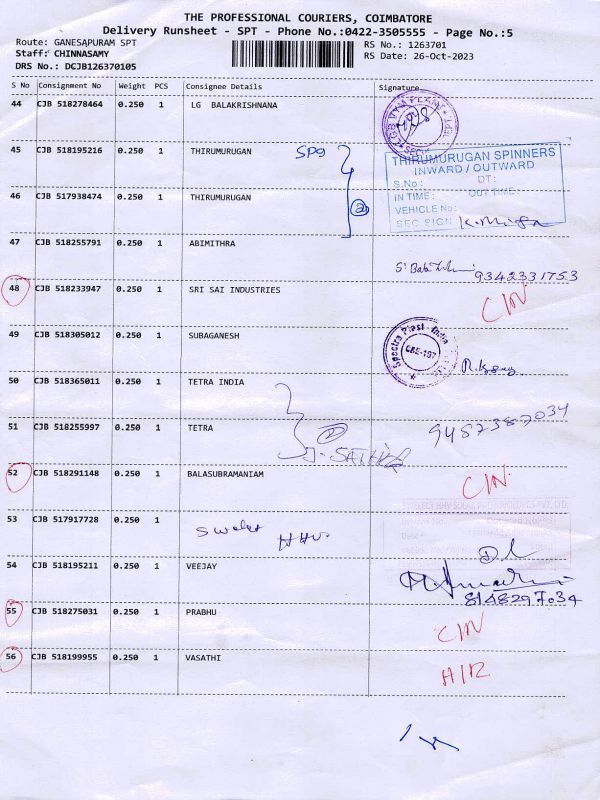 THE PROFESSIONAL COURIERS, COIMBATORE
Delivery Runsheet - SPT - Phone No.:0422-3505555 - Page No.:5
Route: GANESAPURAM SPT
Staff: CHINNASAMY
DRS No.: DCJB126370105
RS No.: 1263701
RS Date: 26-Oct-2023
S No Consignment No Weight PCS Consignee Details Signature
44 CJB 518278464 0.250 1 LG BALAKRISHNANA
45 CJB 518195216 0.250 1 THIRUMURUGAN
THIRUMURUGAN SPINNERS
INWARD / OUTWARD
S.No: DT:
IN TIME: OUT TIME:
VEHICLE No:
SEC SIGN
46 CJB 517938474 0.250 1 THIRUMURUGAN
2
47 CJB 518255791 0.250 1 ABIMITHRA
9342331753
48 CJB 518233947 0.250 1 SRI SAI INDUSTRIES
CIN
49 CJB 518305012 0.250 1 SUBAGANESH
Spectra Plast - India
CBE-107
50 CJB 518365011 0.250 1 TETRA INDIA
51 CJB 518255997 0.250 1 TETRA
2
9487387034
52 CJB 518291148 0.250 1 BALASUBRAMANIAM
CIN
53 CJB 517917728 0.250 1
54 CJB 518195211 0.250 1 VEEJAY
8148297034
55 CJB 518275031 0.250 1 PRABHU
CIN
56 CJB 518199955 0.250 1 VASATHI